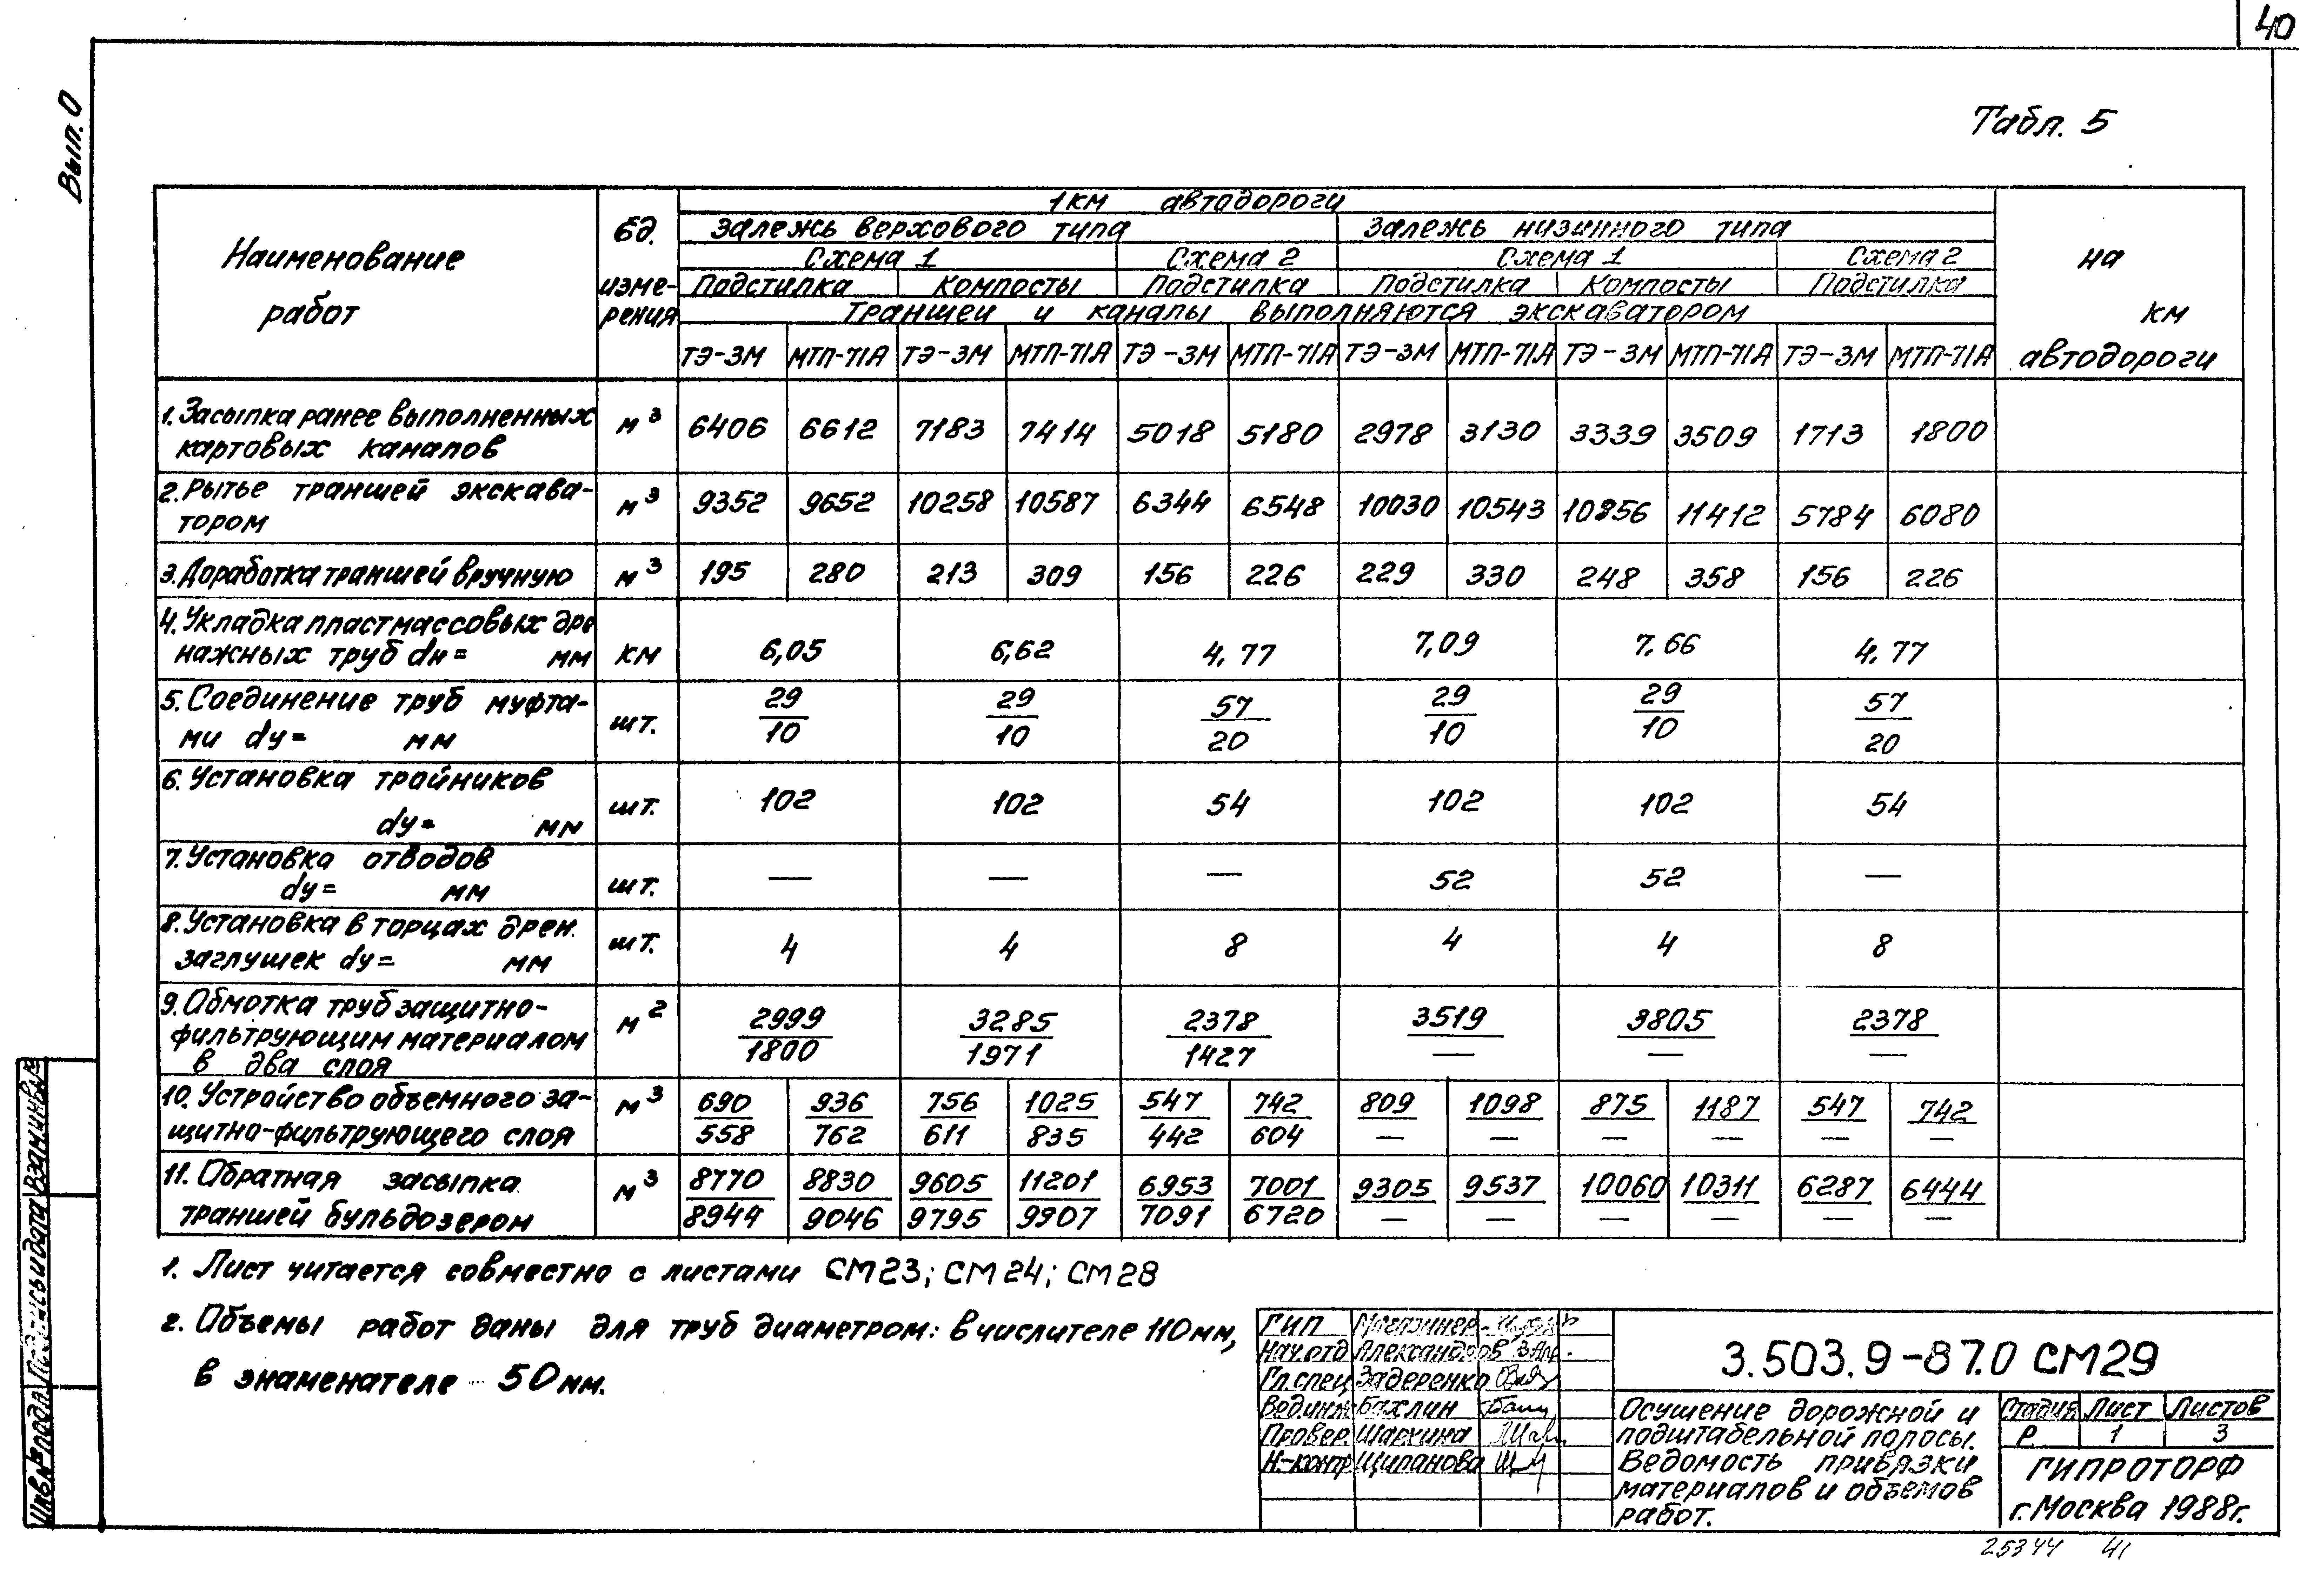 40
Вып. 0
Табл. 5
Наименование работ
Ед. изме-рения
1км автодороги
на км автодороги
Залежь верхового типа Залежь низинного типа
Схема 1 Схема 2 Схема 1 Схема 2
Подстилка Компосты Подстилка Подстилка Компосты Подстилка
Траншеи и каналы выполняются экскаватором
ТЭ-3М МТП-71А ТЭ-3М МТП-71А ТЭ-3М МТП-71А ТЭ-3М МТП-71А ТЭ-3М МТП-71А ТЭ-3М МТП-71А
1. Засыпка ранее выполненных
картовых каналов м³ 6406 6612 7183 7414 5018 5180 2978 3130 3339 3509 1713 1800
2. Рытье траншей экскава-
тором м³ 9352 9652 10258 10587 6344 6548 10030 10543 10856 11412 5784 6080
3. Доработка траншей вручную м³ 195 280 213 309 156 226 229 330 248 358 156 226
4. Укладка пластмассовых дре
нажных труб dн= мм км 6,05 6,62 4,77 7,09 7,66 4,77
5. Соединение труб муфта-
ми dу= мм шт. 29/10 29/10 57/20 29/10 29/10 57/20
6. Установка тройников
dу= мм шт. 102 102 54 102 102 54
7. Установка отводов
dу= мм шт. — — — 52 52 —
8. Установка в торцах дрен.
заглушек dу= мм шт. 4 4 8 4 4 8
9. Обмотка труб защитно-
фильтрующим материалом
в два слоя м² 2999/1800 3285/1971 2378/1427 3519/— 3805/— 2378/—
10. Устройство объемного за-
щитно-фильтрующего слоя м³ 690/558 936/762 756/611 1025/835 547/442 742/604 809/— 1098/— 875/— 1187/— 547/— 742/—
11. Обратная засыпка
траншей бульдозером м³ 8770/8944 8830/9046 9605/9795 11201/9907 6953/7091 7001/6720 9305/— 9537/— 10060/— 10311/— 6287/— 6444/—
1. Лист читается совместно с листами СМ23; СМ24; СМ28
2. Объемы работ даны для труб диаметром: в числителе 110мм,
в знаменателе - 50мм.
ГИП Магазинер
Нач.отд Александров
Гл.спец Задеренко
Вед.инж Бахлин
Провер. Шаркина
Н-контр Щипанова
3.503.9-87.0 СМ29
Осушение дорожной и
подштабельной полосы.
Ведомость привязки
материалов и объемов
работ.
Стадия Лист Листов
Р 1 3
ГИПРОТОРФ
г.Москва 1988г.
Инв.№подл. Подпись и дата Взам.инв.№
25344 41